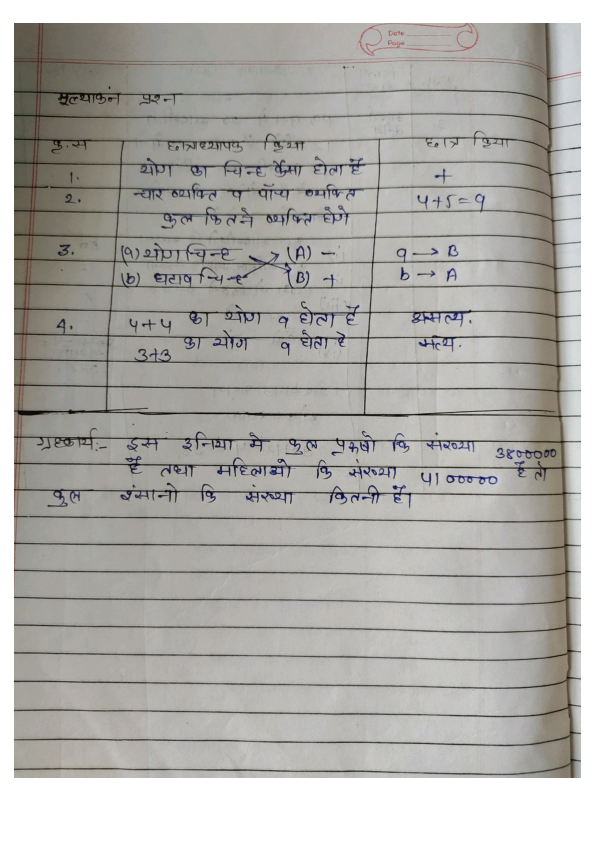 Date
Page
मूल्याकंन प्रश्न
कृ.स छात्रध्यापक क्रिया छात्र क्रिया
1. योग का चिन्ह कैसा होता है +
2. च्यार व्यक्ति व पाँच व्यक्ति 4+5=9
कुल कितने व्यक्ति होगे
3. (a) योग चिन्ह (A) - a → B
(b) घटाव चिन्ह (B) + b → A
4. 4+4 का योग 9 होता है असत्य.
3+3 का योग 9 होता है सत्य.
ग्रहकार्य:- इस दुनिया मे कुल पुरूषो कि संख्या 3800000
है तथा महिलाओ कि संख्या 4100000 है तो
कुल इंसानो कि संख्या कितनी है।